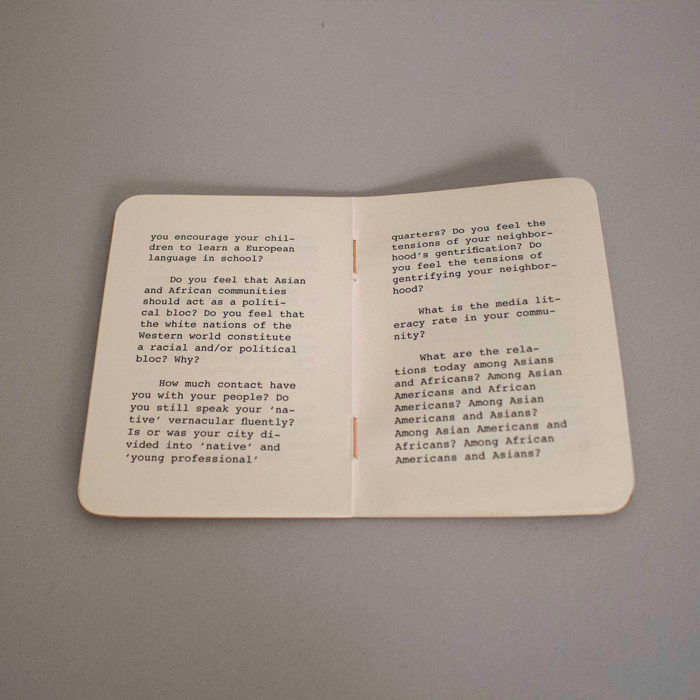 you encourage your chil-
dren to learn a European
language in school?
Do you feel that Asian
and African communities
should act as a politi-
cal bloc? Do you feel that
the white nations of the
Western world constitute
a racial and/or political
bloc? Why?
How much contact have
you with your people? Do
you still speak your ‘na-
tive’ vernacular fluently?
Is or was your city di-
vided into ‘native’ and
‘young professional’
quarters? Do you feel the
tensions of your neighbor-
hood's gentrification? Do
you feel the tensions of
gentrifying your neighbor-
hood?
What is the media lit-
eracy rate in your commu-
nity?
What are the rela-
tions today among Asians
and Africans? Among Asian
Americans and African
Americans? Among Asian
Americans and Asians?
Among Asian Americans and
Africans? Among African
Americans and Asians?